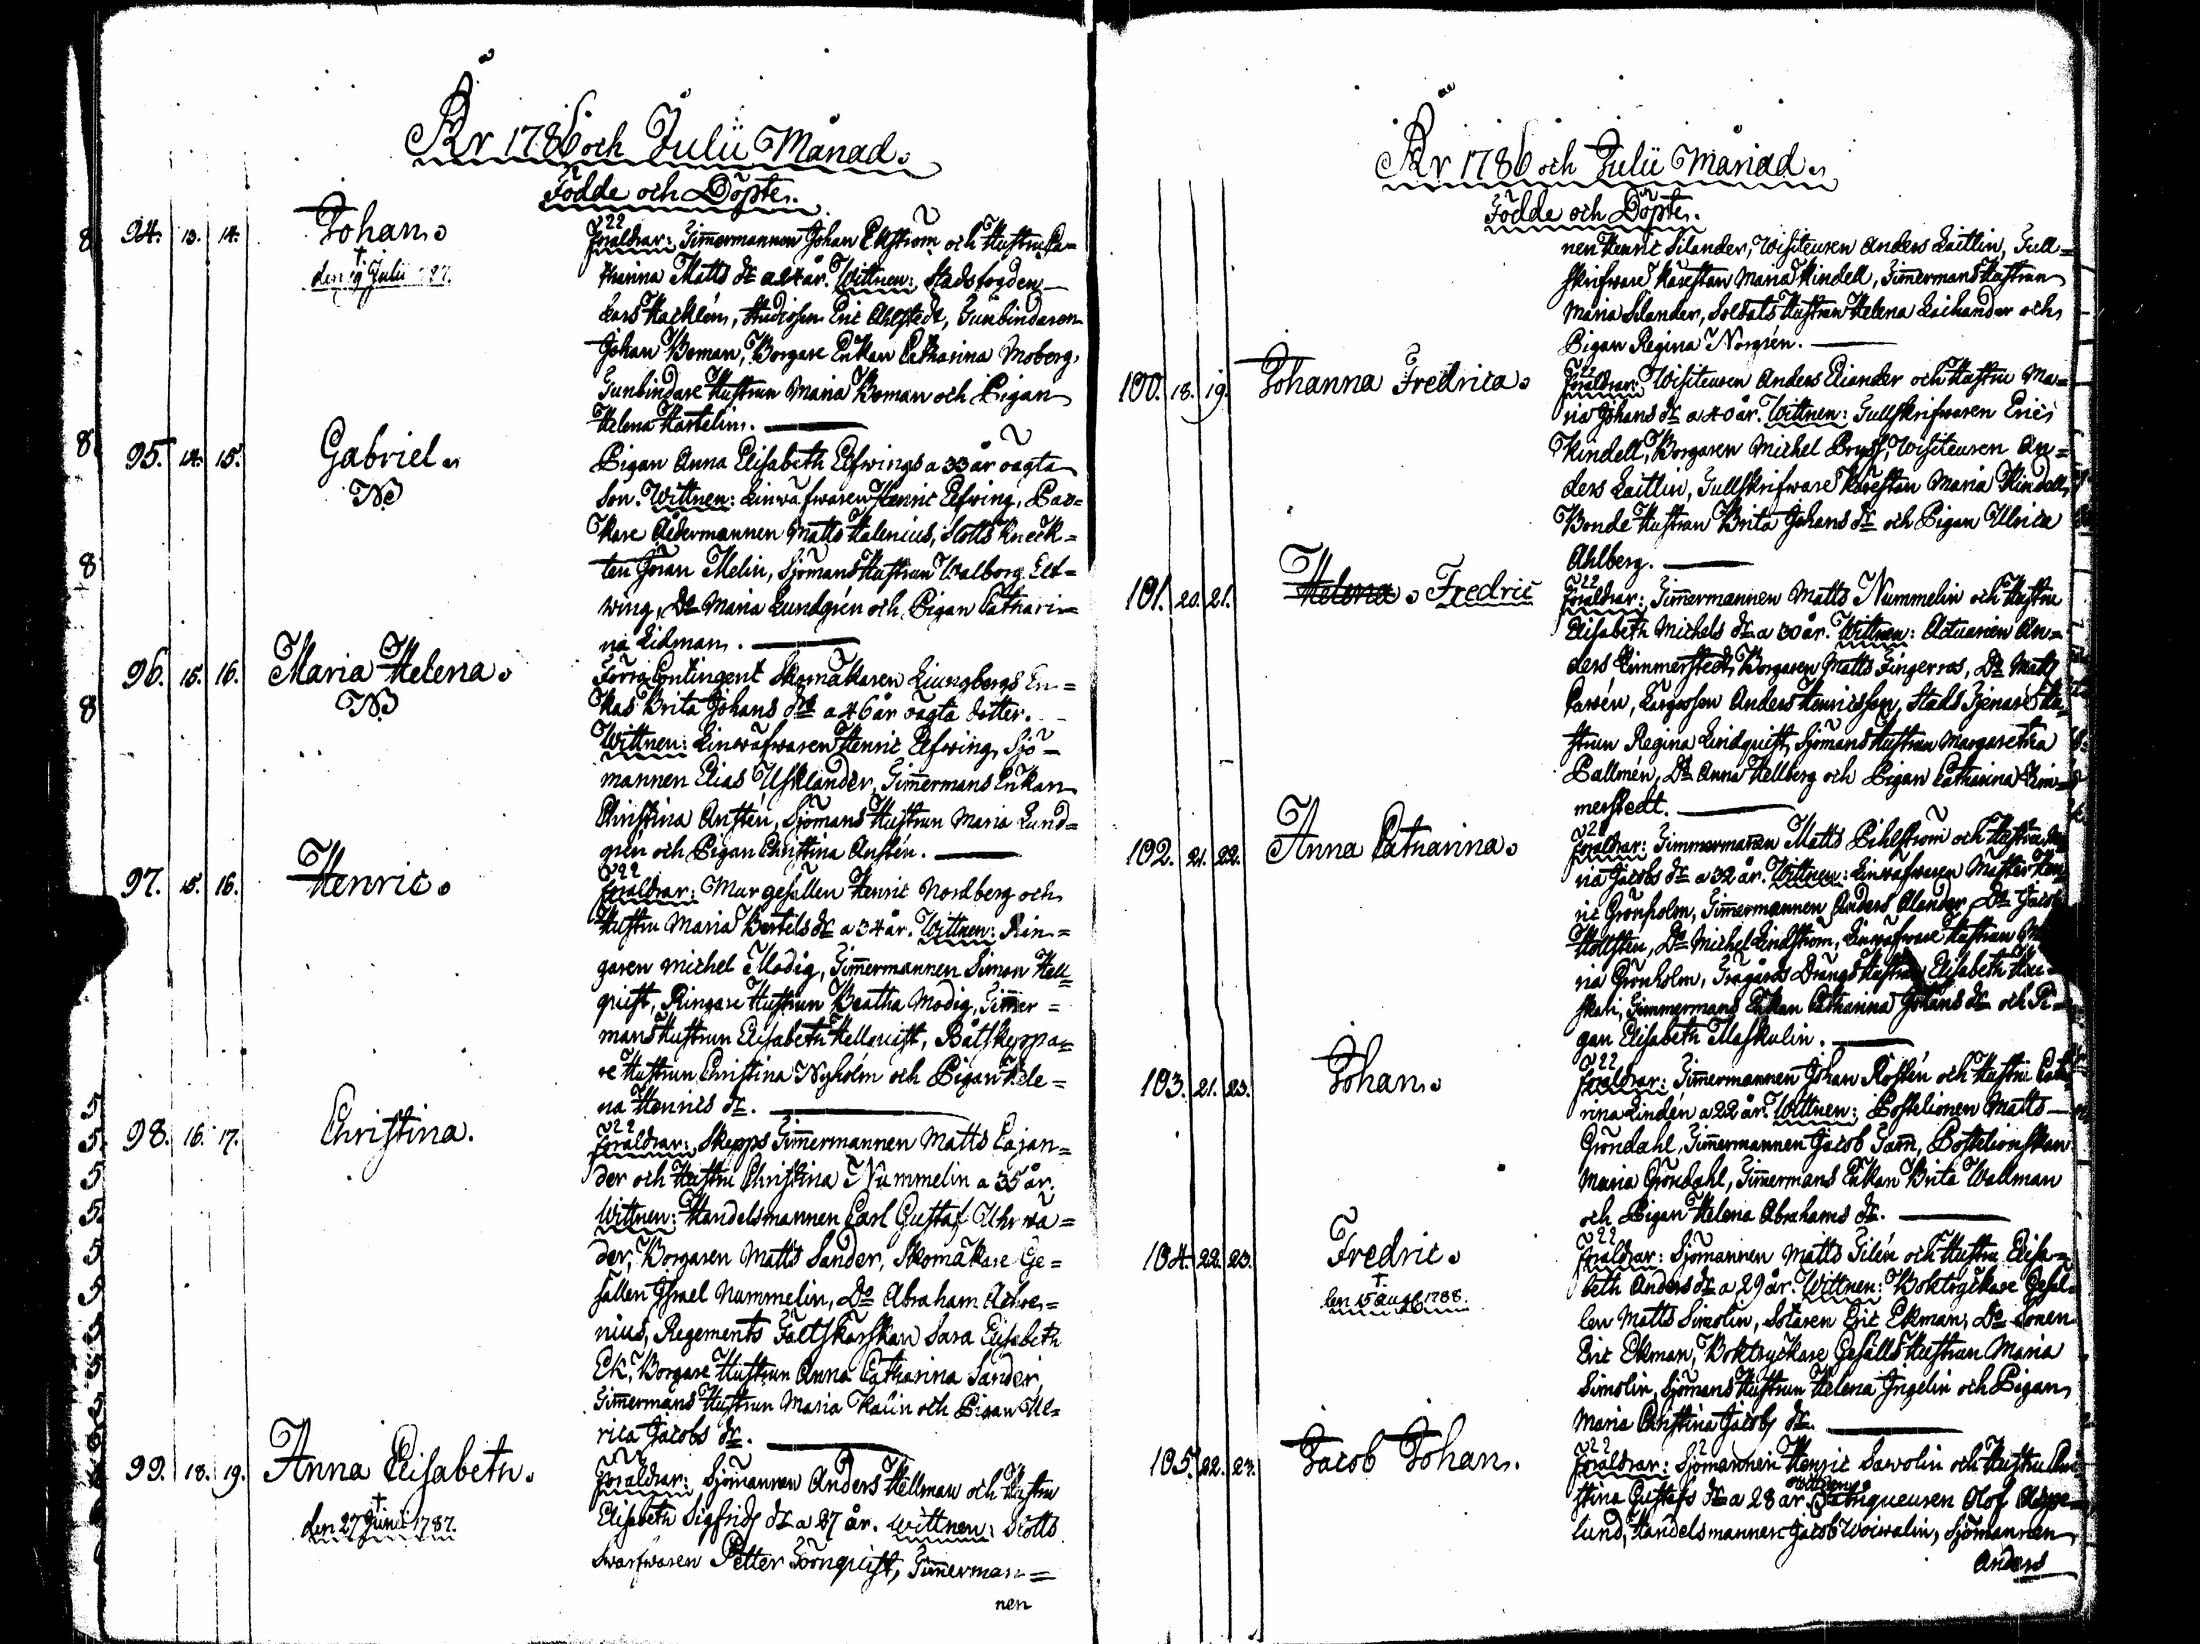 År 1786 och Julii Månad.
Födde och Döpte.
94. 13. 14. Johan.
† den 9 Julii 787.
föräldrar: Timmermannen Johan Ekström och Hustru Ca=
tharina Matts dr a 24 år. Wittnen: Stadsfogden
Lars Hacklén, Studiosen Eric Ahlstedt, Tunbindaren
Johan Boman, Borgare Enkan Catharina Moberg,
Tunbindare Hustrun Maria Boman och Pigan
Helena Hartelin.
95. 14. 15. Gabriel.
NB
Pigan Anna Elisabeth Elfwings a 33 år oägta
Son. Wittnen: Linwäfwaren Henric Elfwing, Gar=
kare Åldermannen Matts Halenius, Slotts Kneck=
ten Jöran Melin, Sjömans Hustrun Walborg Elf=
wing, Do Maria Lundgrén och Pigan Cathari=
na Lidman.
96. 15. 16. Maria Helena.
NB
Förra Contingent Skomakaren Liungbergs En=
kas Brita Johans drs a 46 år oägta dotter.
Wittnen: Linwäfwaren Henric Elfwing, Sjö=
mannen Elias Usklander, Timmermans Enkan
Christina Austén, Sjömans Hustrun Maria Lund=
grén och Pigan Christina Austén.
97. 15. 16. Henric.
föräldrar: Murgesällen Henric Nordberg och
Hustru Maria Bertils dr a 34 år. Wittnen: Rin=
garen Michel Modig, Timmermannen Simon Hell=
quist, Ringare Hustrun Beatha Modig, Timmer=
mans Hustrun Elisabeth Hellquist, Båtskeppa=
re Hustrun Christina Nyholm och Pigan Hele=
na Henrics dr.
98. 16. 17. Christina.
föräldrar: Skepps Timmermannen Matts Cajan=
der och Hustru Christina Nummelin a 35 år.
Wittnen: Handelsmannen Carl Gustaf Uhrwä=
der, Borgaren Matts Sander, Skomakare Ge=
sällen Israel Nummelin, Do Abraham Achre=
nius, Regements Fältskärskan Sara Elisabeth
Ek, Borgare Hustrun Anna Catharina Sander,
Timmermans Hustrun Maria Kalin och Pigan Ul=
rica Jacobs dr.
99. 18. 19. Anna Elisabeth.
† den 27 Junii 1787.
föräldrar: Sjömannen Anders Hellman och Hustru
Elisabeth Sigfrids dr a 27 år. Wittnen: Slotts
Swarfwaren Petter Törnquist, Timmerman=
nen
År 1786 och Julii Månad.
Födde och Döpte.
nen Henric Silander, Wisiteuren Anders Laitlin, Tull=
skrifware Kärestan Maria Kindell, Timmermans Hustrun
Maria Silander, Soldats Hustrun Helena Laihander och
Pigan Regina Norgrén.
100. 18. 19. Johanna Fredrica.
föräldrar: Wisiteuren Anders Eliander och Hustru Ma=
ria Johans dr a 40 år. Wittnen: Tullskrifwaren Eric
Kindell, Borgaren Michel Pryss, Wisiteuren An=
ders Laitlin, Tullskrifware Kärestan Maria Kindell,
Bonde Hustrun Brita Johans dr och Pigan Ulrica
Ahlberg.
101. 20. 21. Helena. Fredric
föräldrar: Timmermannen Matts Nummelin och Hustru
Elisabeth Michels dr a 30 år. Wittnen: Actuarien An=
ders Limmerstedt, Borgaren Matts Fingerroos, Do Matts
Carén, Färgossen Anders Henricsson, Stads Tjenare Hu=
strun Regina Lindquist, Sjömans Hustrun Margaretha
Pallmén, Do Anna Hellberg och Pigan Catharina Lim=
merstedt.
102. 21. 22. Anna Catharina.
föräldrar: Timmermannen Matts Pihlström och Hustru
ria Jacobs dr a 32 år. Wittnen: Linwäfwaren Mäster Hen
ric Grönholm, Timmermannen Anders Alander, Do Jacob
Hollsten, Do Michel Lindström, Linwäfware Hustrun Ma
ria Grönholm, Trägårds Drängs Hustrun Elisabeth
skali, Timmermans Enkan Catharina Johans dr och Pi=
gan Elisabeth Maskulin.
103. 21. 23. Johan.
föräldrar: Timmermannen Johan Rostén och Hustru Catha
rina Lindén a 22 år. Wittnen: Postelionen Matts
Gröndahl, Timmermannen Jacob Tam, Postelionskan
Maria Gröndahl, Timmermans Enkan Brita Wallman
och Pigan Helena Abrahams dr.
104. 22. 23. Fredric.
† den 15 aug 1788.
föräldrar: Sjömannen Matts Tilén och Hustru Elisa=
beth Anders dr a 29 år. Wittnen: Boktryckare Gesäl=
len Matts Simolin, Sotaren Eric Ekman, Do Sonen
Eric Ekman, Boktryckare Gesälls Hustrun Maria
Simolin, Sjömans Hustrun Helena Ingelin och Pigan
Maria Christina Jacobs dr.
105. 22. 23. Jacob Johan.
föräldrar: Sjömannen Henric Sawolin och Hustru Chri
stina Gustafs dr a 28 år Wittnen: Olof
lund, Handelsmannen Jacob Woiwalin, Sjömannen
Anders